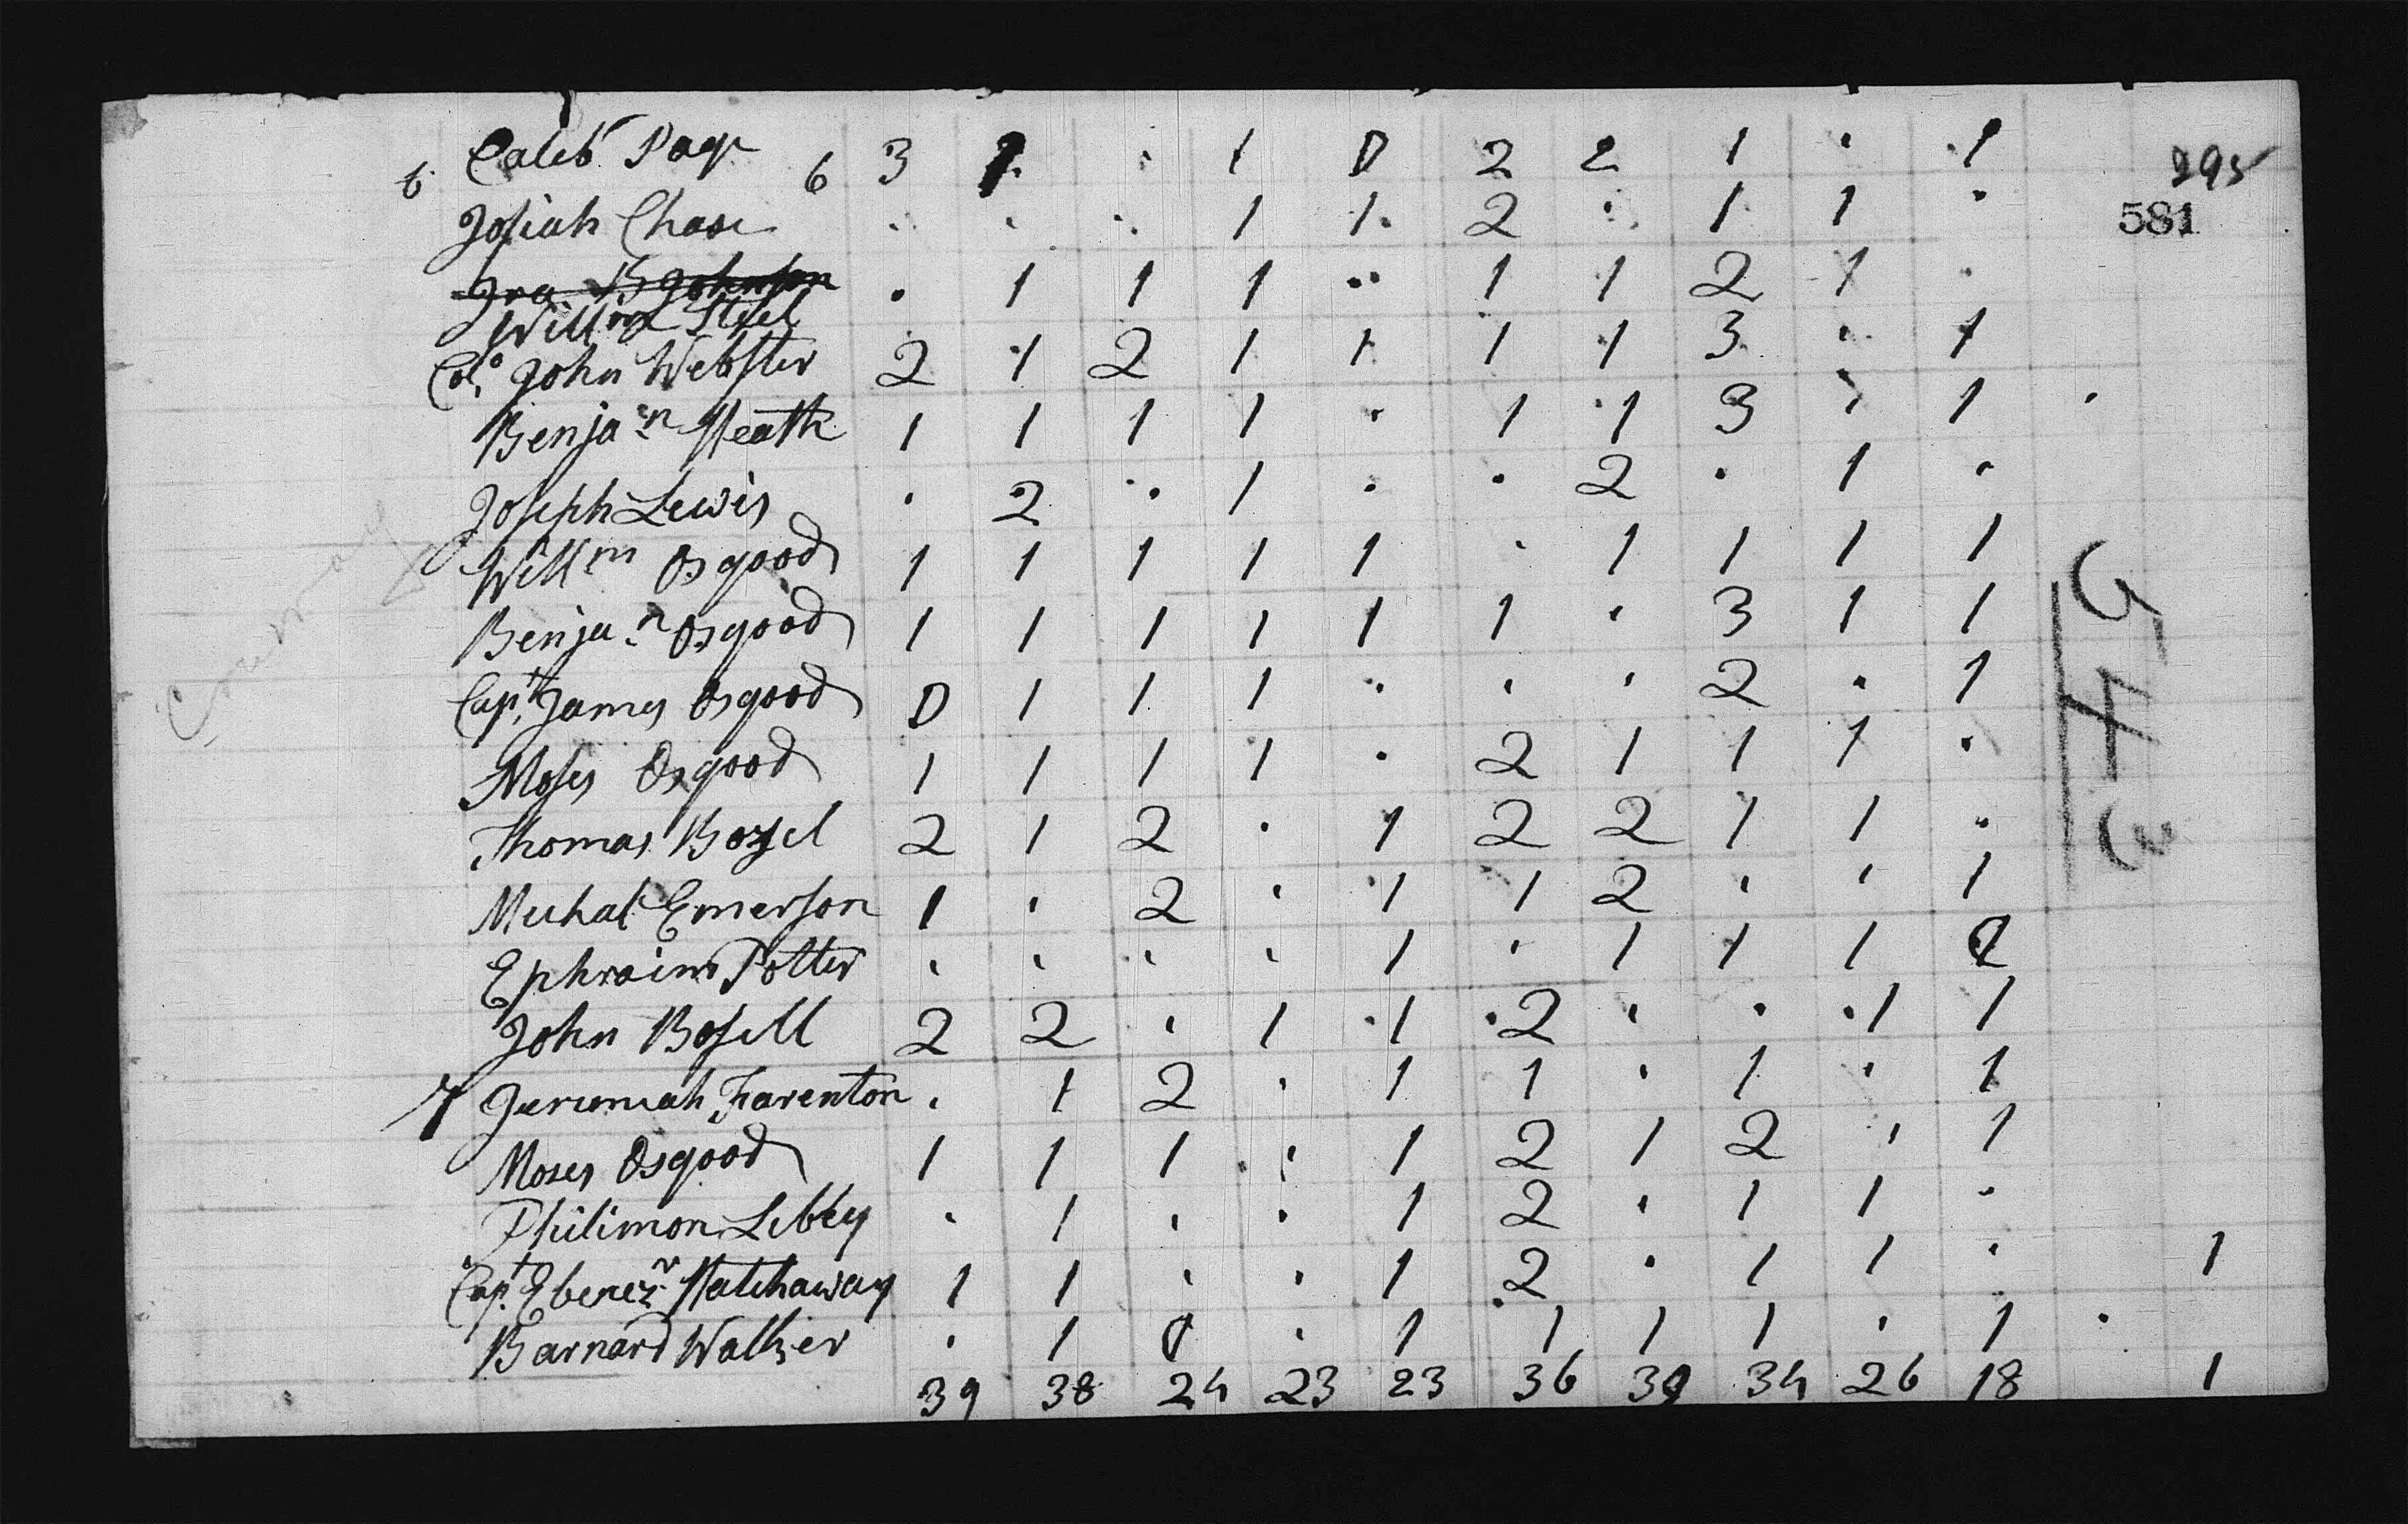 6 Caleb Page 6 3 1 . 1 0 2 2 1 . 1
295
Josiah Chase . . . 1 1 2 . 1 1 .
581
Ira B Johnson
Will^m Steel . 1 1 1 . 1 1 2 1 .
Col^o John Webster 2 1 2 1 1 1 1 3 . 1
Benja^n Heath 1 1 1 1 . 1 1 3 . 1 .
Joseph Lewis . 2 . 1 . . 2 . 1 .
Will^m Osgood 1 1 1 1 1 . 1 1 1 1
Benja^n Osgood 1 1 1 1 1 1 . 3 1 1
Cap^t James Osgood 0 1 1 1 . . . 2 . 1
Moses Osgood 1 1 1 1 . 2 1 1 1 .
Thomas Bozel 2 1 2 . 1 2 2 1 1 .
Michal Emerson 1 . 2 . 1 1 2 . . 1
Ephraim Potter . . . . 1 . 1 1 1
John Bosell 2 2 . 1 1 2 . . 1 1
7 Jeremiah Farenton . 1 2 . 1 1 . 1 . 1
Moses Osgood 1 1 1 . 1 2 1 2 . 1
Philimon Libbey . 1 . . 1 2 . 1 1 .
Cap^t Ebenez^r Hatchaway 1 1 . . 1 2 . 1 1 . 1
Barnard Walker . 1 0 . 1 1 1 1 . 1 .
39 38 24 23 23 36 30 34 26 18 1
Conway
543